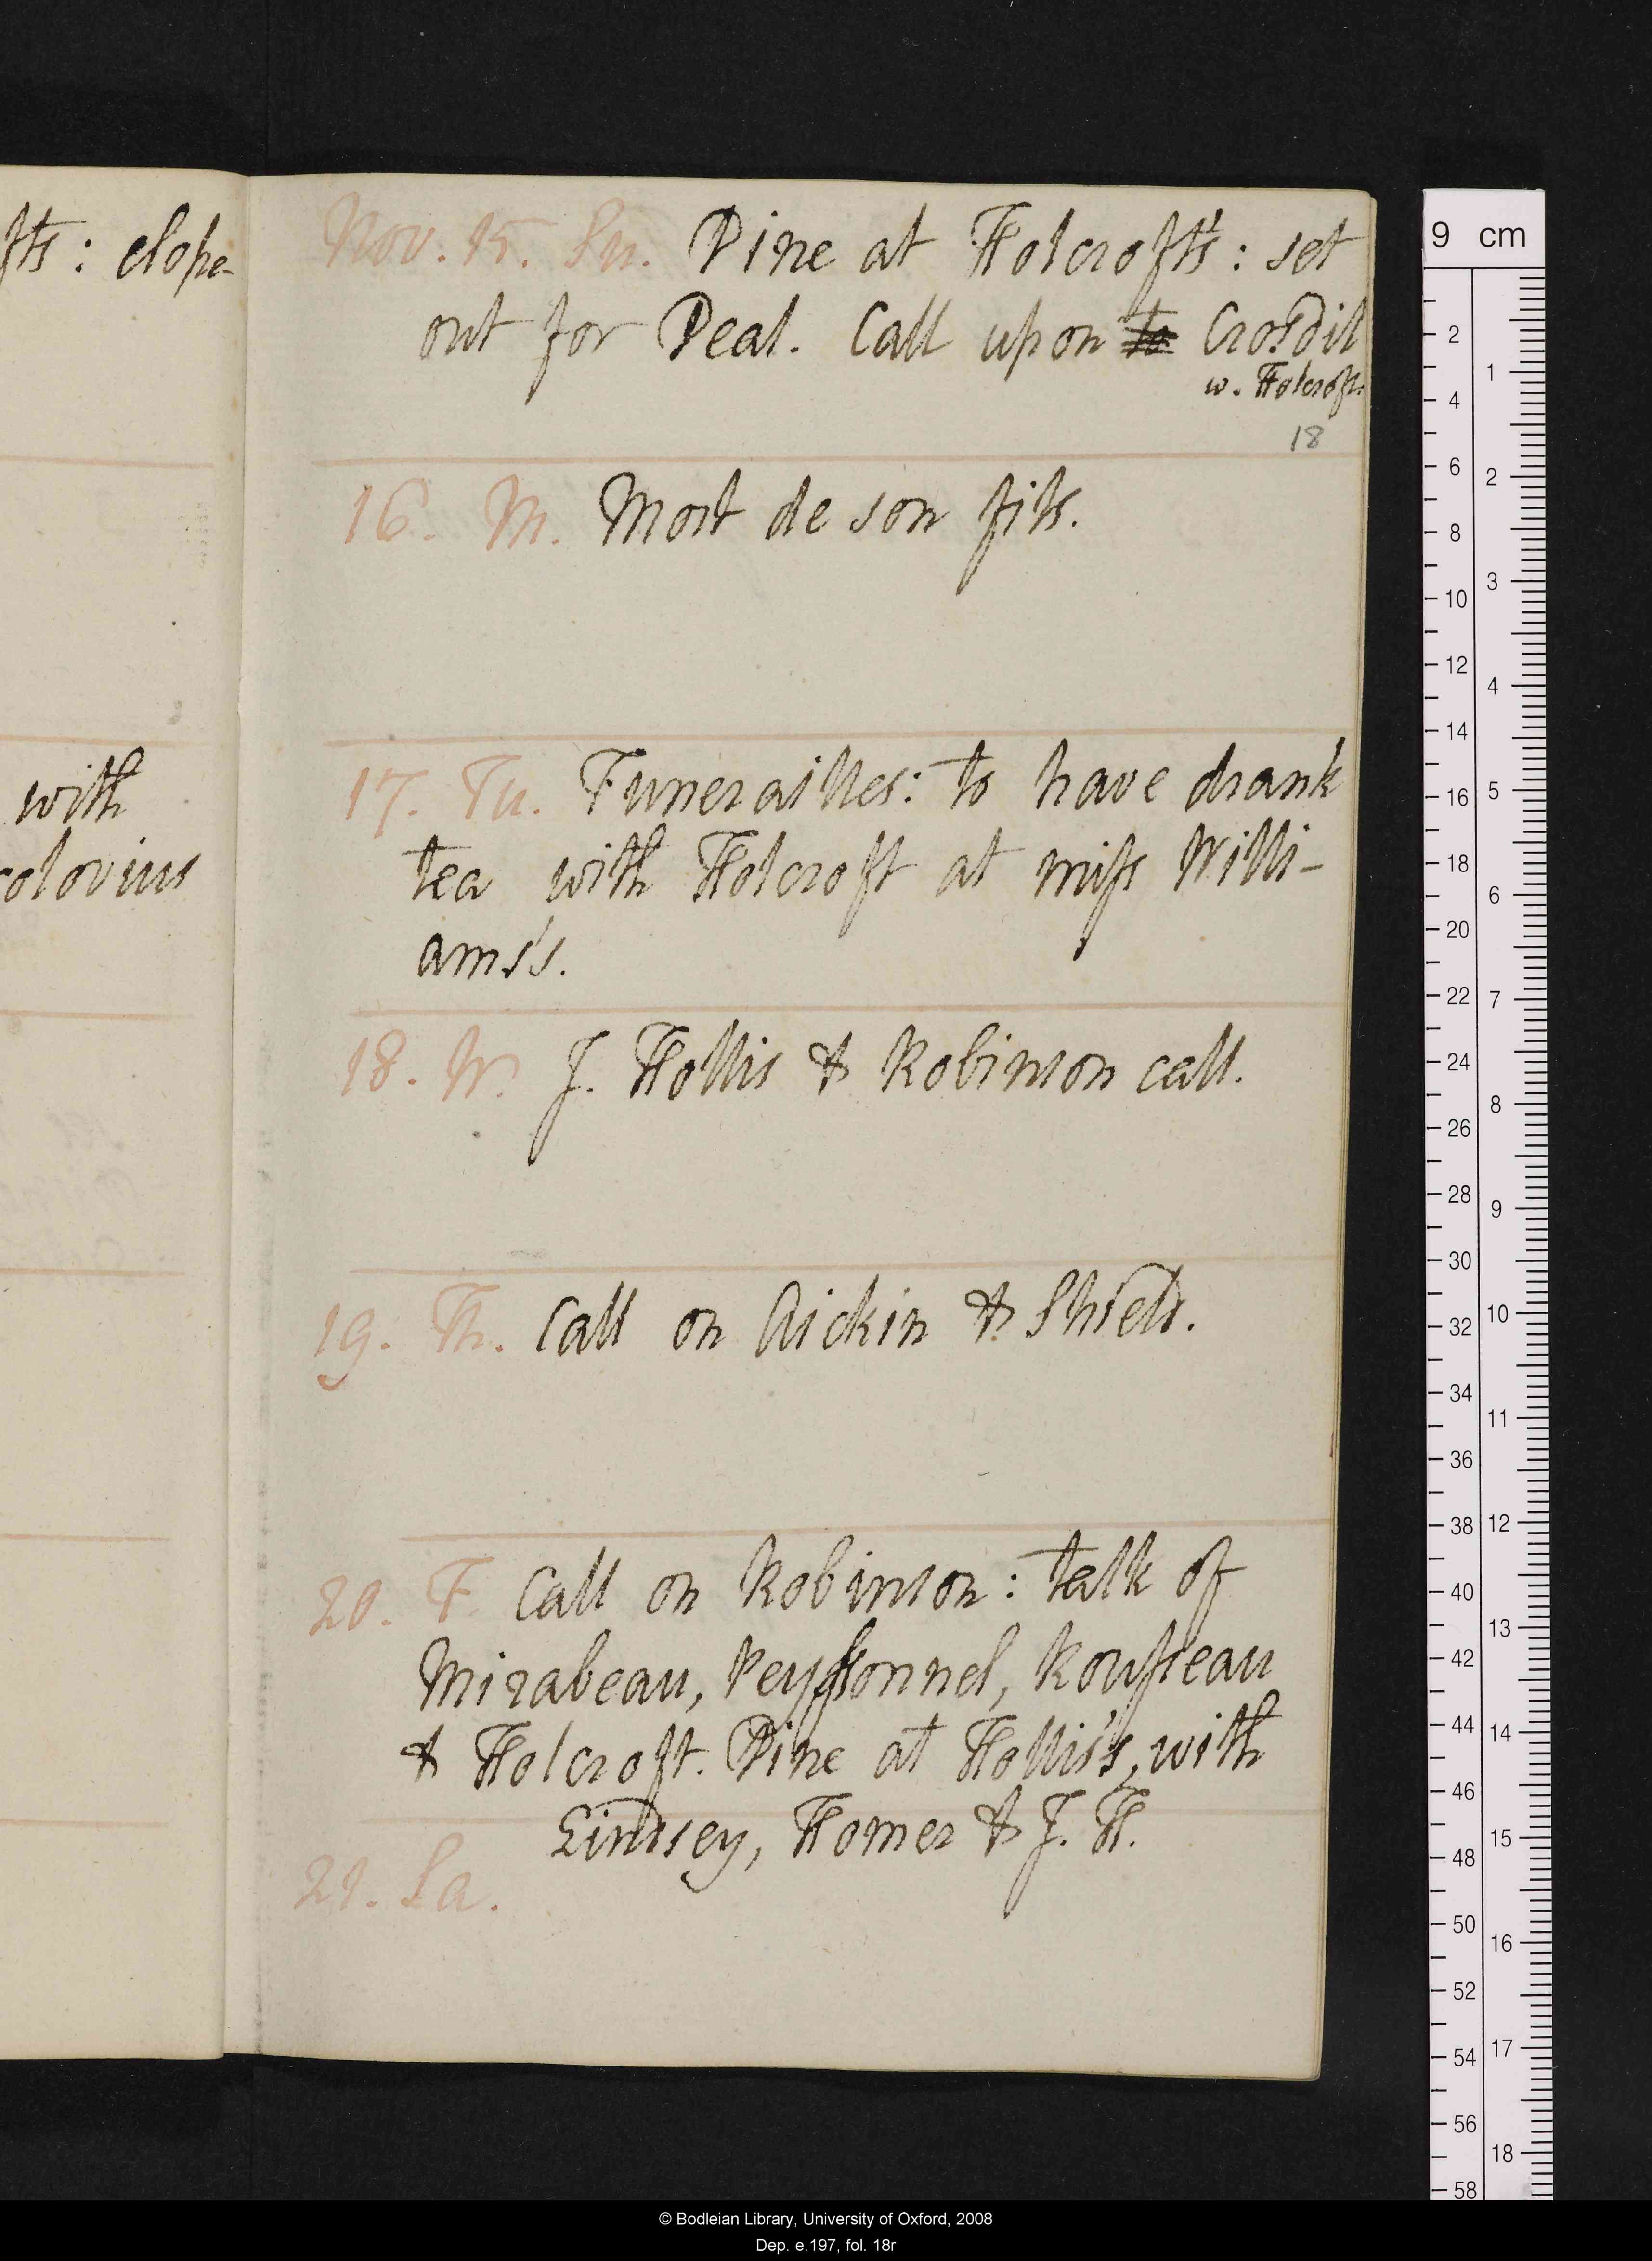 fts: elope-
with
olovius
Nov. 15. Su. Dine at Holcroft's: set
out for Deal. Call upon to Crosdil
w. Holcroft.
18
16. M. Mort de son fils.
17. Tu. Funerailles: to have drank
tea with Holcroft at miss Willi-
ams's.
18. W. J. Hollis & Robinson call.
19. Th. Call on Aickin & Shield.
20. F. Call on Robinson: talk of
Mirabeau, Peyssonnel, Rousseau
& Holcroft. Dine at Hollis's, with
Lindsey, Homer & J. H.
21. Sa.
9 cm
2
4
6
8
10
12
14
16
18
20
22
24
26
28
30
32
34
36
38
40
42
44
46
48
50
52
54
56
58
1
2
3
4
5
6
7
8
9
10
11
12
13
14
15
16
17
18
© Bodleian Library, University of Oxford, 2008
Dep. e.197, fol. 18r